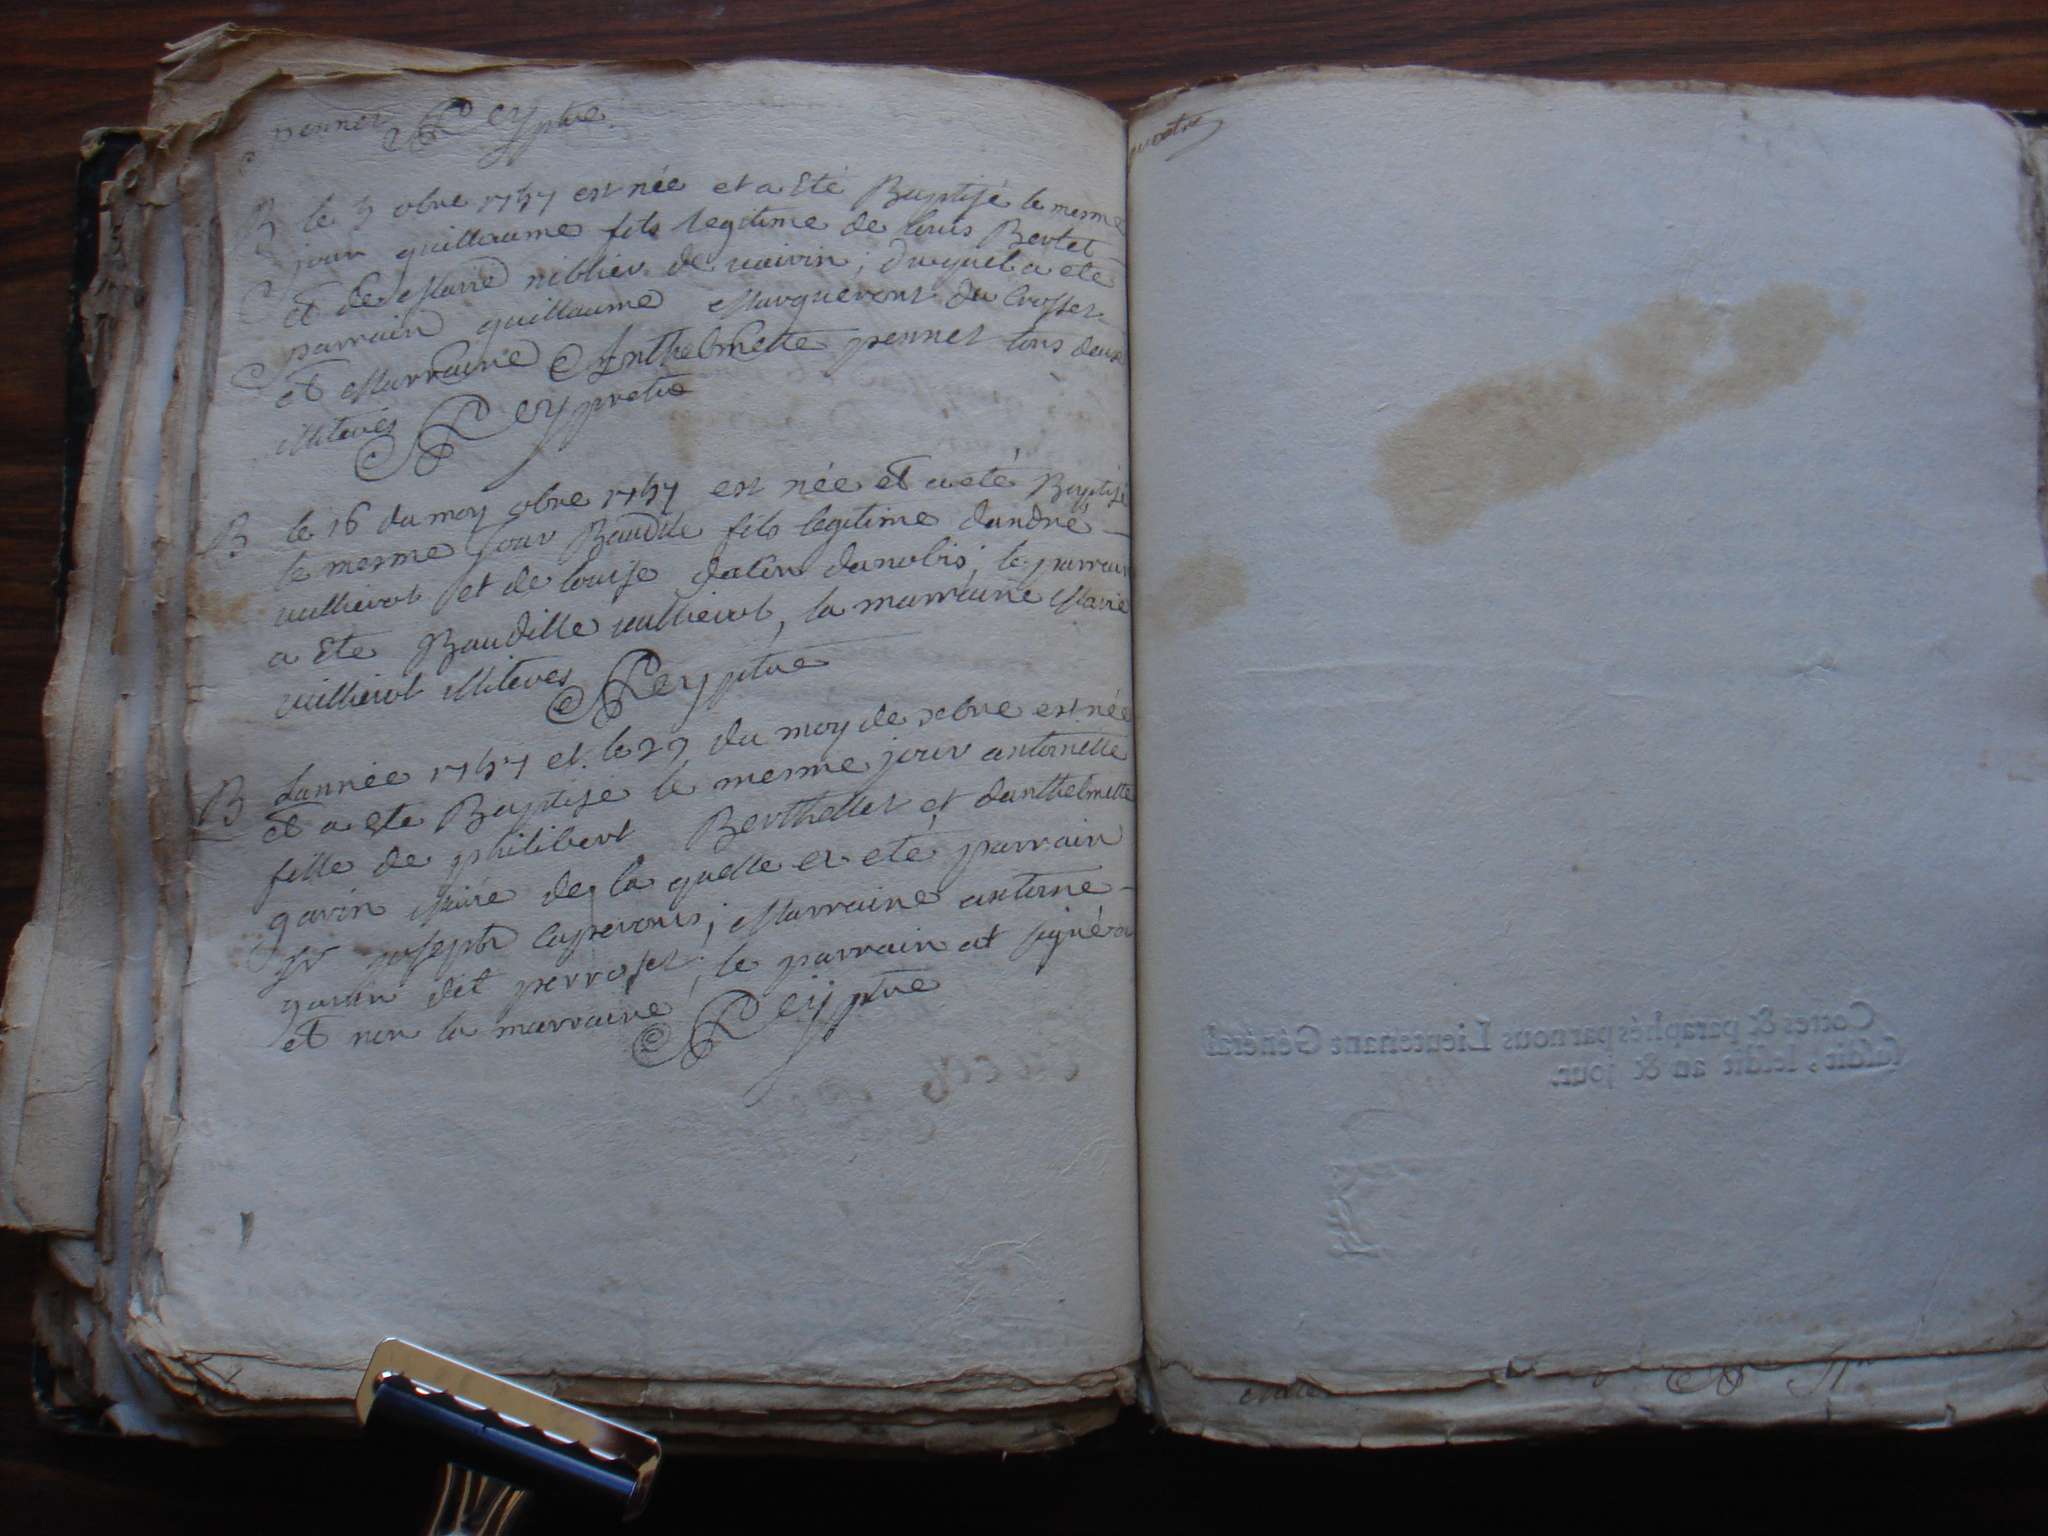 pennet Rey ptre
B le 3 obre 1757 est née et a Eté Baptisé le mesme
jour guillaume fils legitime de louis Bertet
et de Marie niblier de vaivin ; duquel a eté
parrain guillaume Margueront du Crosset
et Marraine Anthelmette pennet tous deux
illiterés Rey pretre
B le 16 du moy obre 1757 est née et a eté Baptisé
le mesme jour Baudile fils legitime dandré
vullierot et de louise dalin danolis ; le parrain
a Ete Baudille vullierot, la marraine Marie
vullierot illiteres Rey ptre
B Lannée 1757 et le 27 du moy de xbre est née
et a ete Baptisé le mesme jour antoinette
fille de philibert Berthellet et danthelmette
gavin Mure de la quelle et eté parrain
Sr joseph Caprevons ; Marraine antoine
gavin dit perroset ; le parrain at signé
et non la marraine Rey ptre
quatre
Cottes & paraphés par nous Lieutenant Général
susdit, lesdit an & jour.